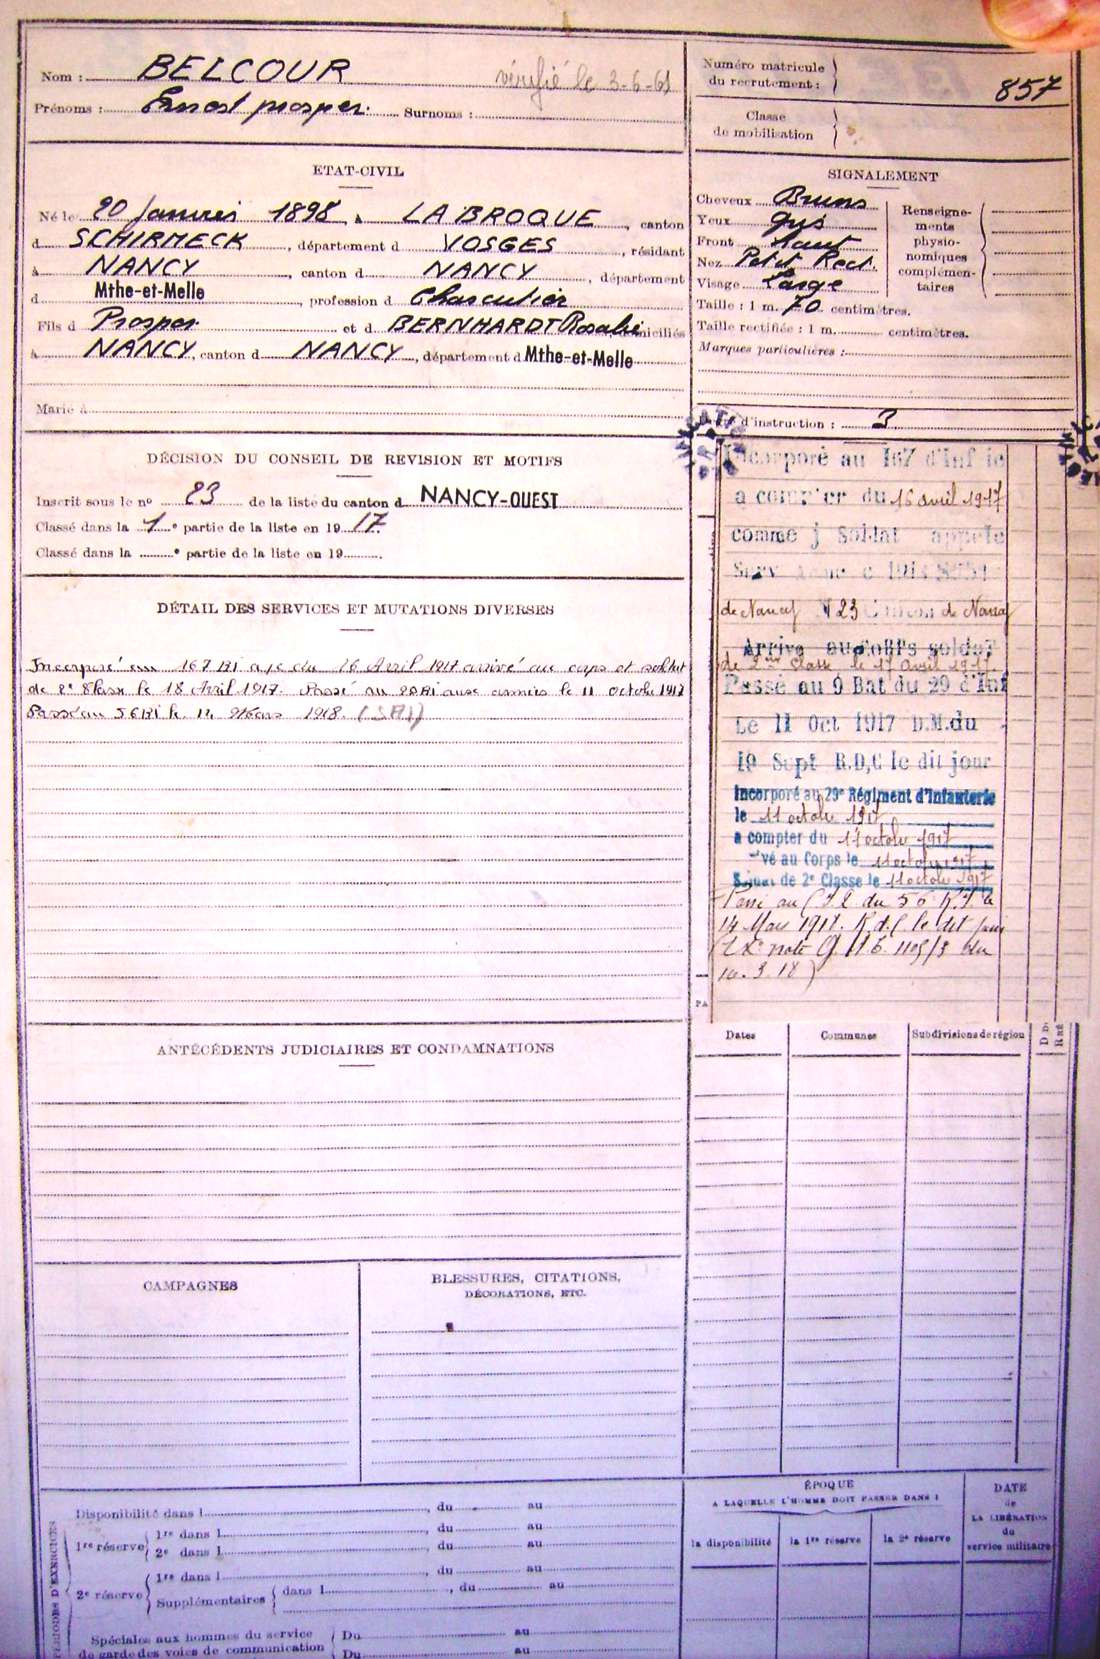 Nom : BELCOUR vérifié le 3-6-61
Prénoms : Ernest prosper. Surnoms :
Numéro matricule
du recrutement : 857
Classe
de mobilisation
ETAT-CIVIL
Né le 20 Janvier 1898, à LA BROQUE, canton
d SCHIRMECK, département d VOSGES, résidant
à NANCY, canton d NANCY, département
d Mthe-et-Melle, profession d Charcutier
Fils d Prosper et d BERNHARDT Rosalie domiciliés
à NANCY, canton d NANCY, département d Mthe-et-Melle
Marié à
SIGNALEMENT
Cheveux Bruns
Yeux gris
Front haut
Nez Petit Rect.
Visage Large
Renseigne-
ments
physio-
nomiques
complémen-
taires
Taille : 1 m. 70 centimètres.
Taille rectifiée : 1 m. centimètres.
Marques particulières :
d'instruction : 3
DÉCISION DU CONSEIL DE REVISION ET MOTIFS
Inscrit sous le nº 23 de la liste du canton d NANCY-OUEST
Classé dans la 1e partie de la liste en 19 17.
Classé dans la e partie de la liste en 19 .
DÉTAIL DES SERVICES ET MUTATIONS DIVERSES
Incorporé au 167 RI à c du 16 Avril 1917 arrivé au corps et soldat
de 2e Classe le 18 Avril 1917. Passé au 29 RI aux armées le 11 octobre 1917
Passé au 56 RI le 14 Mars 1918.
Incorporé au 167 d'Inf ie
a compter du 16 avril 1917
comme Soldat appelé
de Nancy N 23 Canton de Nancy
Arrivé au Corps soldat
de 2me Classe le 17 avril 1917.
Passé au 9 Bat du 29 d'Inf
Le 11 Oct 1917 D.M. du
19 Sept R.D.C le dit jour
Incorporé au 29e Régiment d'Infanterie
le 11 octobre 1917
a compter du 11 octobre 1917
vé au Corps le 11 octobre 1917
Soldat de 2e Classe le 11 octobre 1917
Passé au C I D du 56 R.I. le
14 Mars 1917. R d C le dit jour
note 1105/3 du
10.3.18)
PA
Dates Communes Subdivisions de région
ANTÉCÉDENTS JUDICIAIRES ET CONDAMNATIONS
CAMPAGNES
BLESSURES, CITATIONS,
DÉCORATIONS, ETC.
PÉRIODES D'EXERCICES
Disponibilité dans l , du au
1re réserve
1re dans l , du au
2e dans l , du au
2e réserve
1re dans l , du au
Supplémentaires dans l , du au
Spéciales aux hommes du service
de garde des voies de communication
Du au
Du au
ÉPOQUE
A LAQUELLE L'HOMME DOIT PASSER DANS :
la disponibilité la 1re réserve la 2e réserve
DATE
de
LA LIBÉRATION
du
service militaire